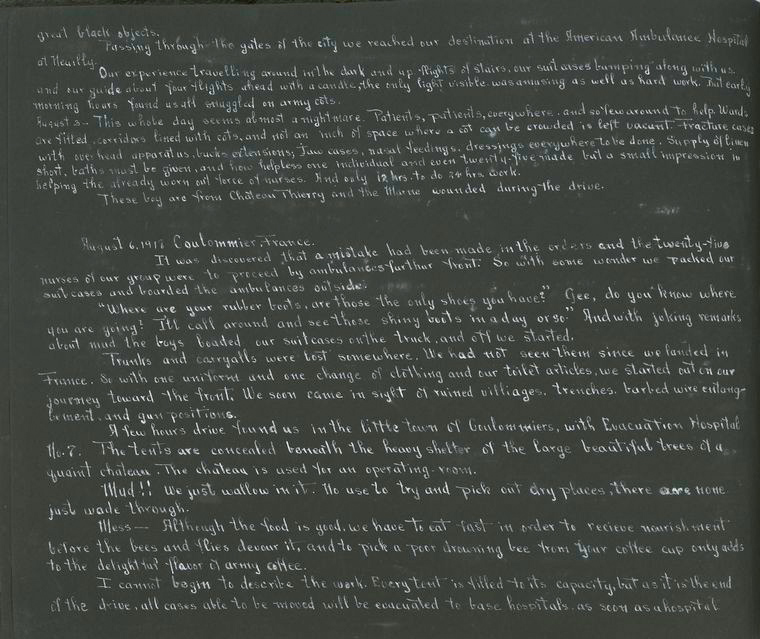 great black objects.
Passing through the gates of the city we reached our destination at the American Ambulance Hospital
at Neuilly.
Our experience travelling around in the dark and up flights of stairs, our suitcases bumping along with us
and our guide about four flights ahead with a candle, the only light visible was amusing as well as hard work. But early
morning hours found us all snuggled on army cots.
August 3 — This whole day seems almost a nightmare. Patients, patients, everywhere, and so few around to help. Wards
are filled, corridors lined with cots, and not an inch of space where a cot can be crowded is left vacant. Fracture cases
with overhead apparatus, bucks extensions; Jaw cases, nasal feedings, dressings everywhere to be done. Supply of linen
short, baths must be given, and how helpless one individual and even twenty-five made but a small impression in
helping the already worn out force of nurses. And only 12 hrs. to do 24 hrs. work.
These boy are from Château Thierry and the Marne wounded during the drive.
August 6, 1918 Coulommier, France.
It was discovered that a mistake had been made in the orders and the twenty-five
nurses of our group were to proceed by ambulances further front. So with some wonder we packed our
suitcases and boarded the ambulances outside.
"Where are your rubber boots, are those the only shoes you have?" Gee, do you know where
you are going? I'll call around and see those shiny boots in a day or so" And with joking remarks
about mud the boys loaded our suitcases on the truck, and off we started.
Trunks and carryalls were lost somewhere. We had not seen them since we landed in
France. So with one uniform and one change of clothing and our toilet articles, we started out on our
journey toward the front. We soon came in sight of ruined villiages, trenches, barbed wire entang-
lement, and gun positions.
A few hours drive found us in the little town of Coulommiers, with Evacuation Hospital
No. 7. The tents are concealed beneath the heavy shelter of the large beautiful trees of a
quaint château. The château is used for an operating-room.
Mud!! We just wallow in it. No use to try and pick out dry places, there are none
just wade through.
Mess — Although the food is good, we have to eat fast in order to recieve nourishment
before the bees and flies devour it, and to pick a poor drowning bee from your coffee cup only adds
to the delightful flavor of army coffee.
I cannot begin to describe the work. Every tent is filled to its capacity, but as it is the end
of the drive, all cases able to be moved will be evacuated to base hospitals, as soon as a hospital